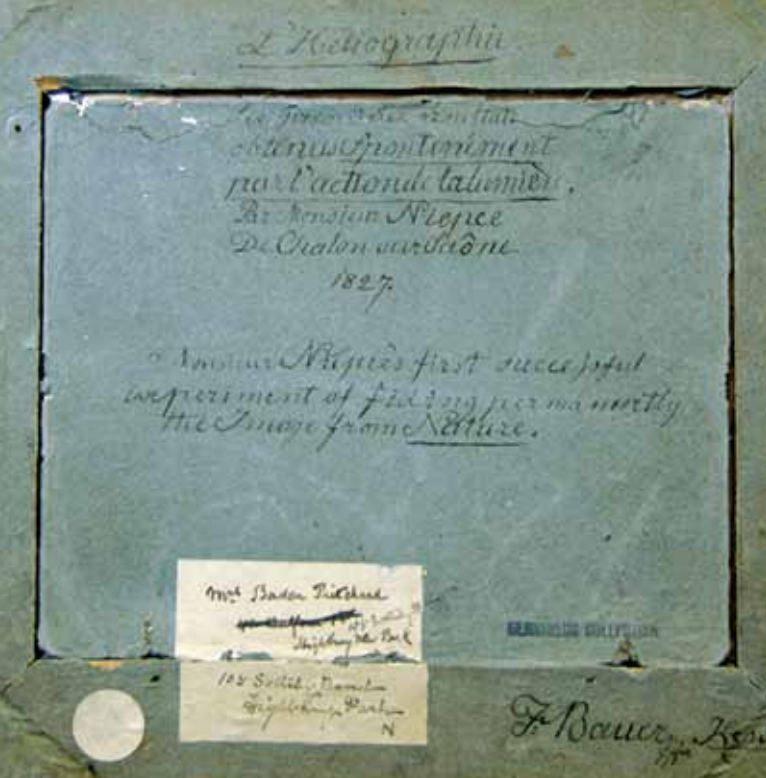 L'Héliographie.
Les premiers résultats
obtenus Spontanément
par l'action de la lumière.
Par Monsieur Niepce
De Chalon sur Saône
1827.
Monsieur Niepce's first successful
experiment of fixing permanently
the Image from Nature.
Mrs Baden Pritchard
Highbury New Park
GERNSHEIM COLLECTION
108 Sotheby Road
Highbury Park
N
F. Bauer Kew